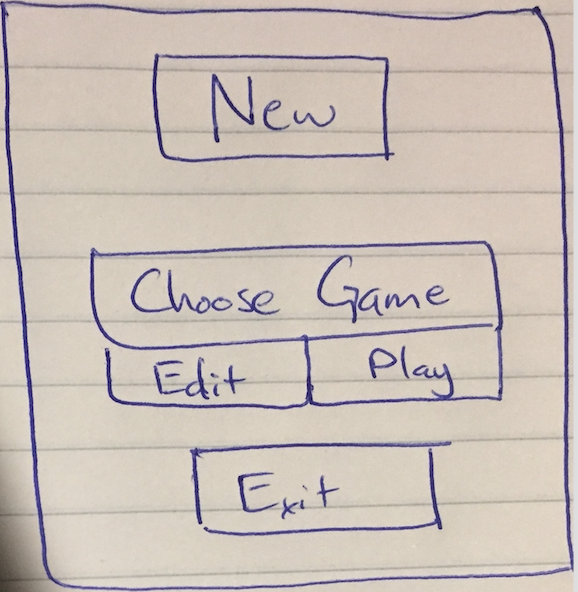 New
Choose Game
Edit Play
Exit